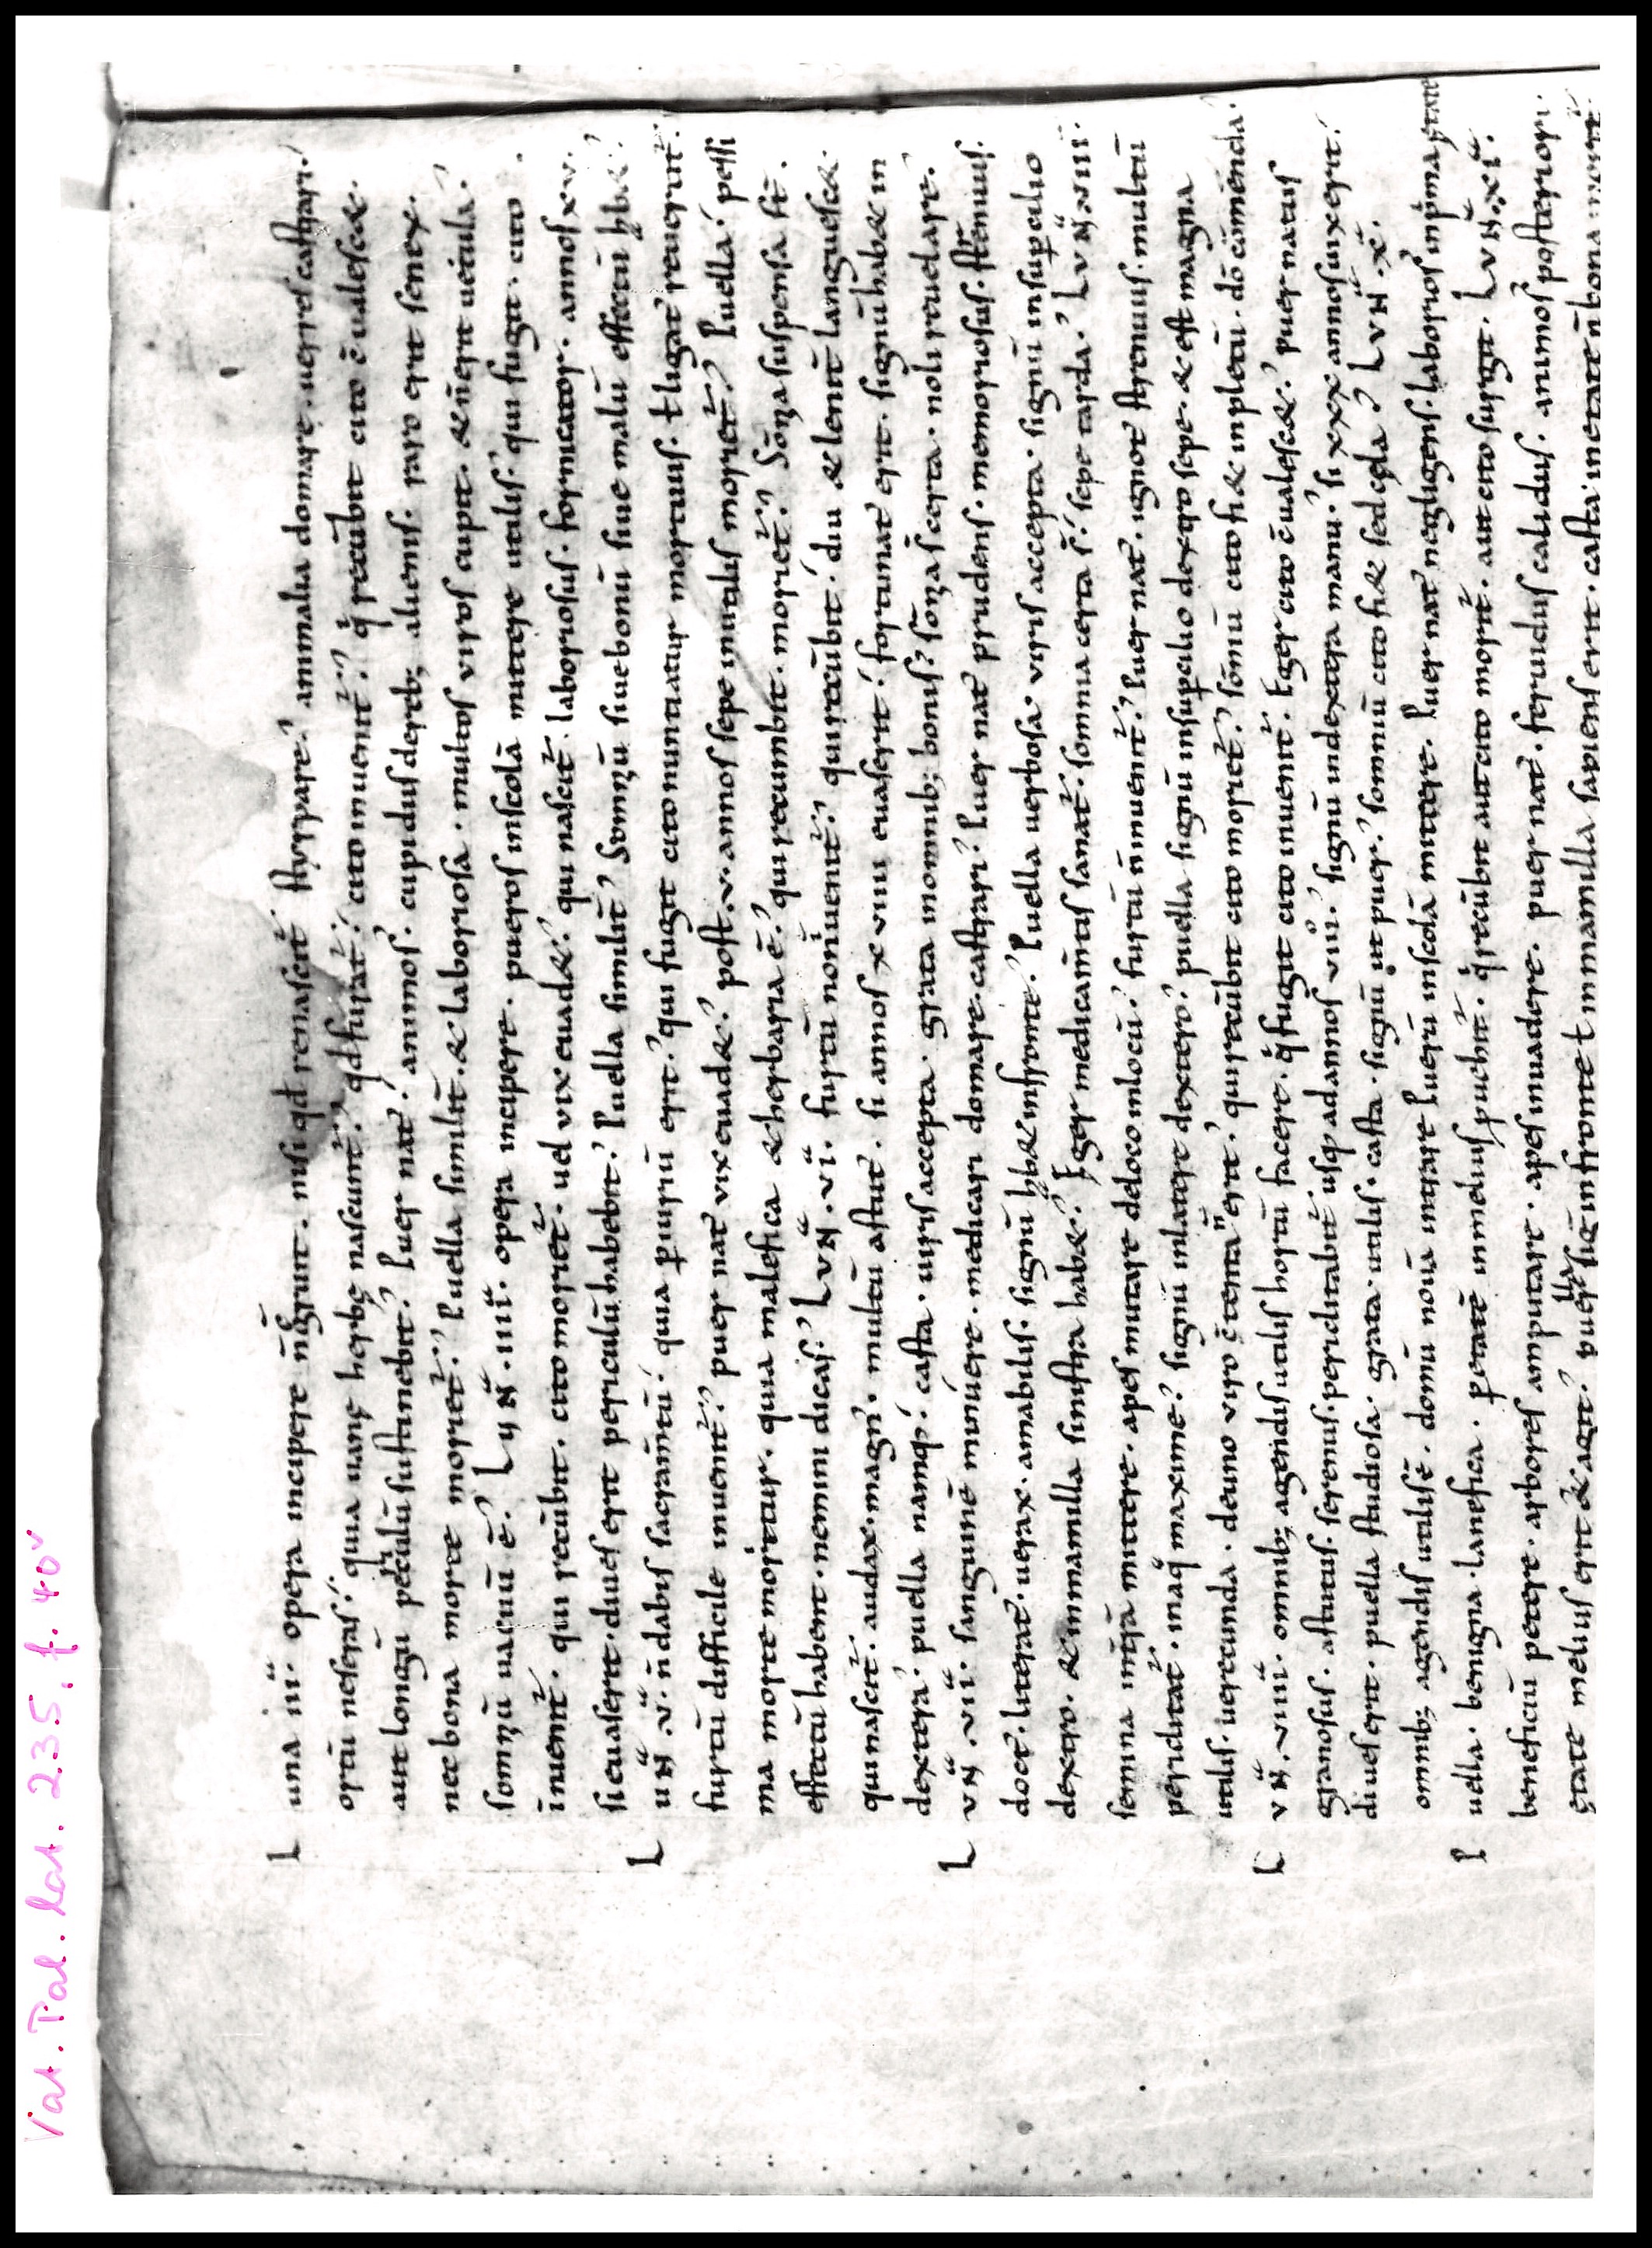 Vat. Pal. lat. 235. f. 40v
Luna iii. opera incipere n̄ gr̄unt. nisi qd renascit̄ styrpare. animalia domare. uerres castrari.
ortū neseras. quia uanę herbę nascunt̄. qd furat̄. cito inuenit̄. q̇ recūbit cito c̄ualesc&.
aut longū periculū sustinebit. Puer nat̄. animos. cupidus de reb; alienis. raro erit senex.
nec bona morte moriet̄. Puella similit̄. & laboriosa. multos uiros cupit. & n̄ erit uetula.
somnū uacuū ē. LuN̄. iiii. opera incipere. pueros in scolā mittere utilis. qui fugit. cito
inuenit̄. qui recūbit. cito moriet̄. uel vix euad&. qui nascit̄. laboriosus. fornicator. annos xv.
si euaserit. diues erit periculū habebit. Puella similit̄. Somnū siue bonū siue malū effectū hb&.
LuN̄. v. n̄ dabis sacram̄tū. quia p̱iuriū erit. qui fugit cito nuntiatur mortuus. ł ligat̄ reuerit̄.
furtū difficile inuenit̄. puer nat̄ vix euad&. post. v. annos sepe inutilis moriet̄. Puella. pessi
ma morte moritur. quia malefica & herbaria ē. qui recumbit. moriet̄. Somnia suspensa st̄.
effectū habent. nemini dicas. LuN̄. vi. furtū non inuenit̄. qui recūbit. diu & lenit̄ languesc&.
qui nascit̄. audax. magn. multū astut̄. si annos xviii euaserit. fortunat̄ erit. signū hab& in
dextera. puella namq. casta. uiris accepta. grata in omnib; bonis. somnia s̄ certa. noli reuelare.
LvN̄. vii. sanguinē minuere. medicari domare. castrari. Puer nat̄ prudens. memoriosus. strenuus.
docet. literat̄. uerax. amabilis. signū hb& in fronte. Puella uerbosa. viris accepta. signū in sup̱cilio
dextro. & in mamilla sinistra hab&. Eger medicam̄tis sanat̄. somnia certa s̄. sepe tarda. LvN̄. viii.
semina in tr̄a mittere. apes mutare de loco in locū. furtū n̄ inuenit̄. Puer nat̄. ignot̄ strenuus. multū
periclitat̄. in aq̇ maxime. signū in latere dextero. puella signū in sup̱cilio dextro sepe. & est magna
utilis. uerecunda. de uno viro c̄tenta erit. qui recūbit cito moriet̄. somnū cito fi& inpletū. dō cōmenda.
LvN̄. viiii. omnib; agendis utilis hortū facere. q̇ fugit cito inuenit̄. Eger cito c̄ualesc&. puer natus
granosus. astutus. serenus. periclitabit̄ usq ad annos viii. signū in dextera manu. si xxx annos uixerit.
diues erit. puella studiosa. grata. utilis. casta. signū ut puer. somniū cito fi& sed cęla. LvN̄. x.
omnib; agendis utilis ē. domū nouā intrare Puerū in scolā mittere. Puer nat̄ negligens. laborios̄ in p̄ma ętate
Puella. benigna. lanefica. p̱ etatē in melius p̱uebit̄. q̇ recūbit aut cito morit̄. aut cito surgit. LvN̄. xi.
beneficiū petere. arbores amputare. apes inuadere. puer nat̄. feruidus calidus. animos̄ posteriori.
ętate melius erit & agit̄. puella sign̄ in fronte ł in mamilla sapiens erit. casta. in etate n̄ bona morit̄.